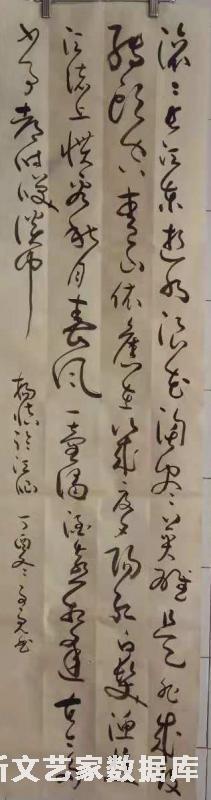 滚滚长江东逝水浪花淘尽英雄是非成败
转头空青山依旧在几度夕阳红白发渔樵
江渚上惯看秋月春风一壶浊酒喜相逢古今多
少事都付笑谈中
杨慎临江仙 丁酉冬 书
文艺家数据库